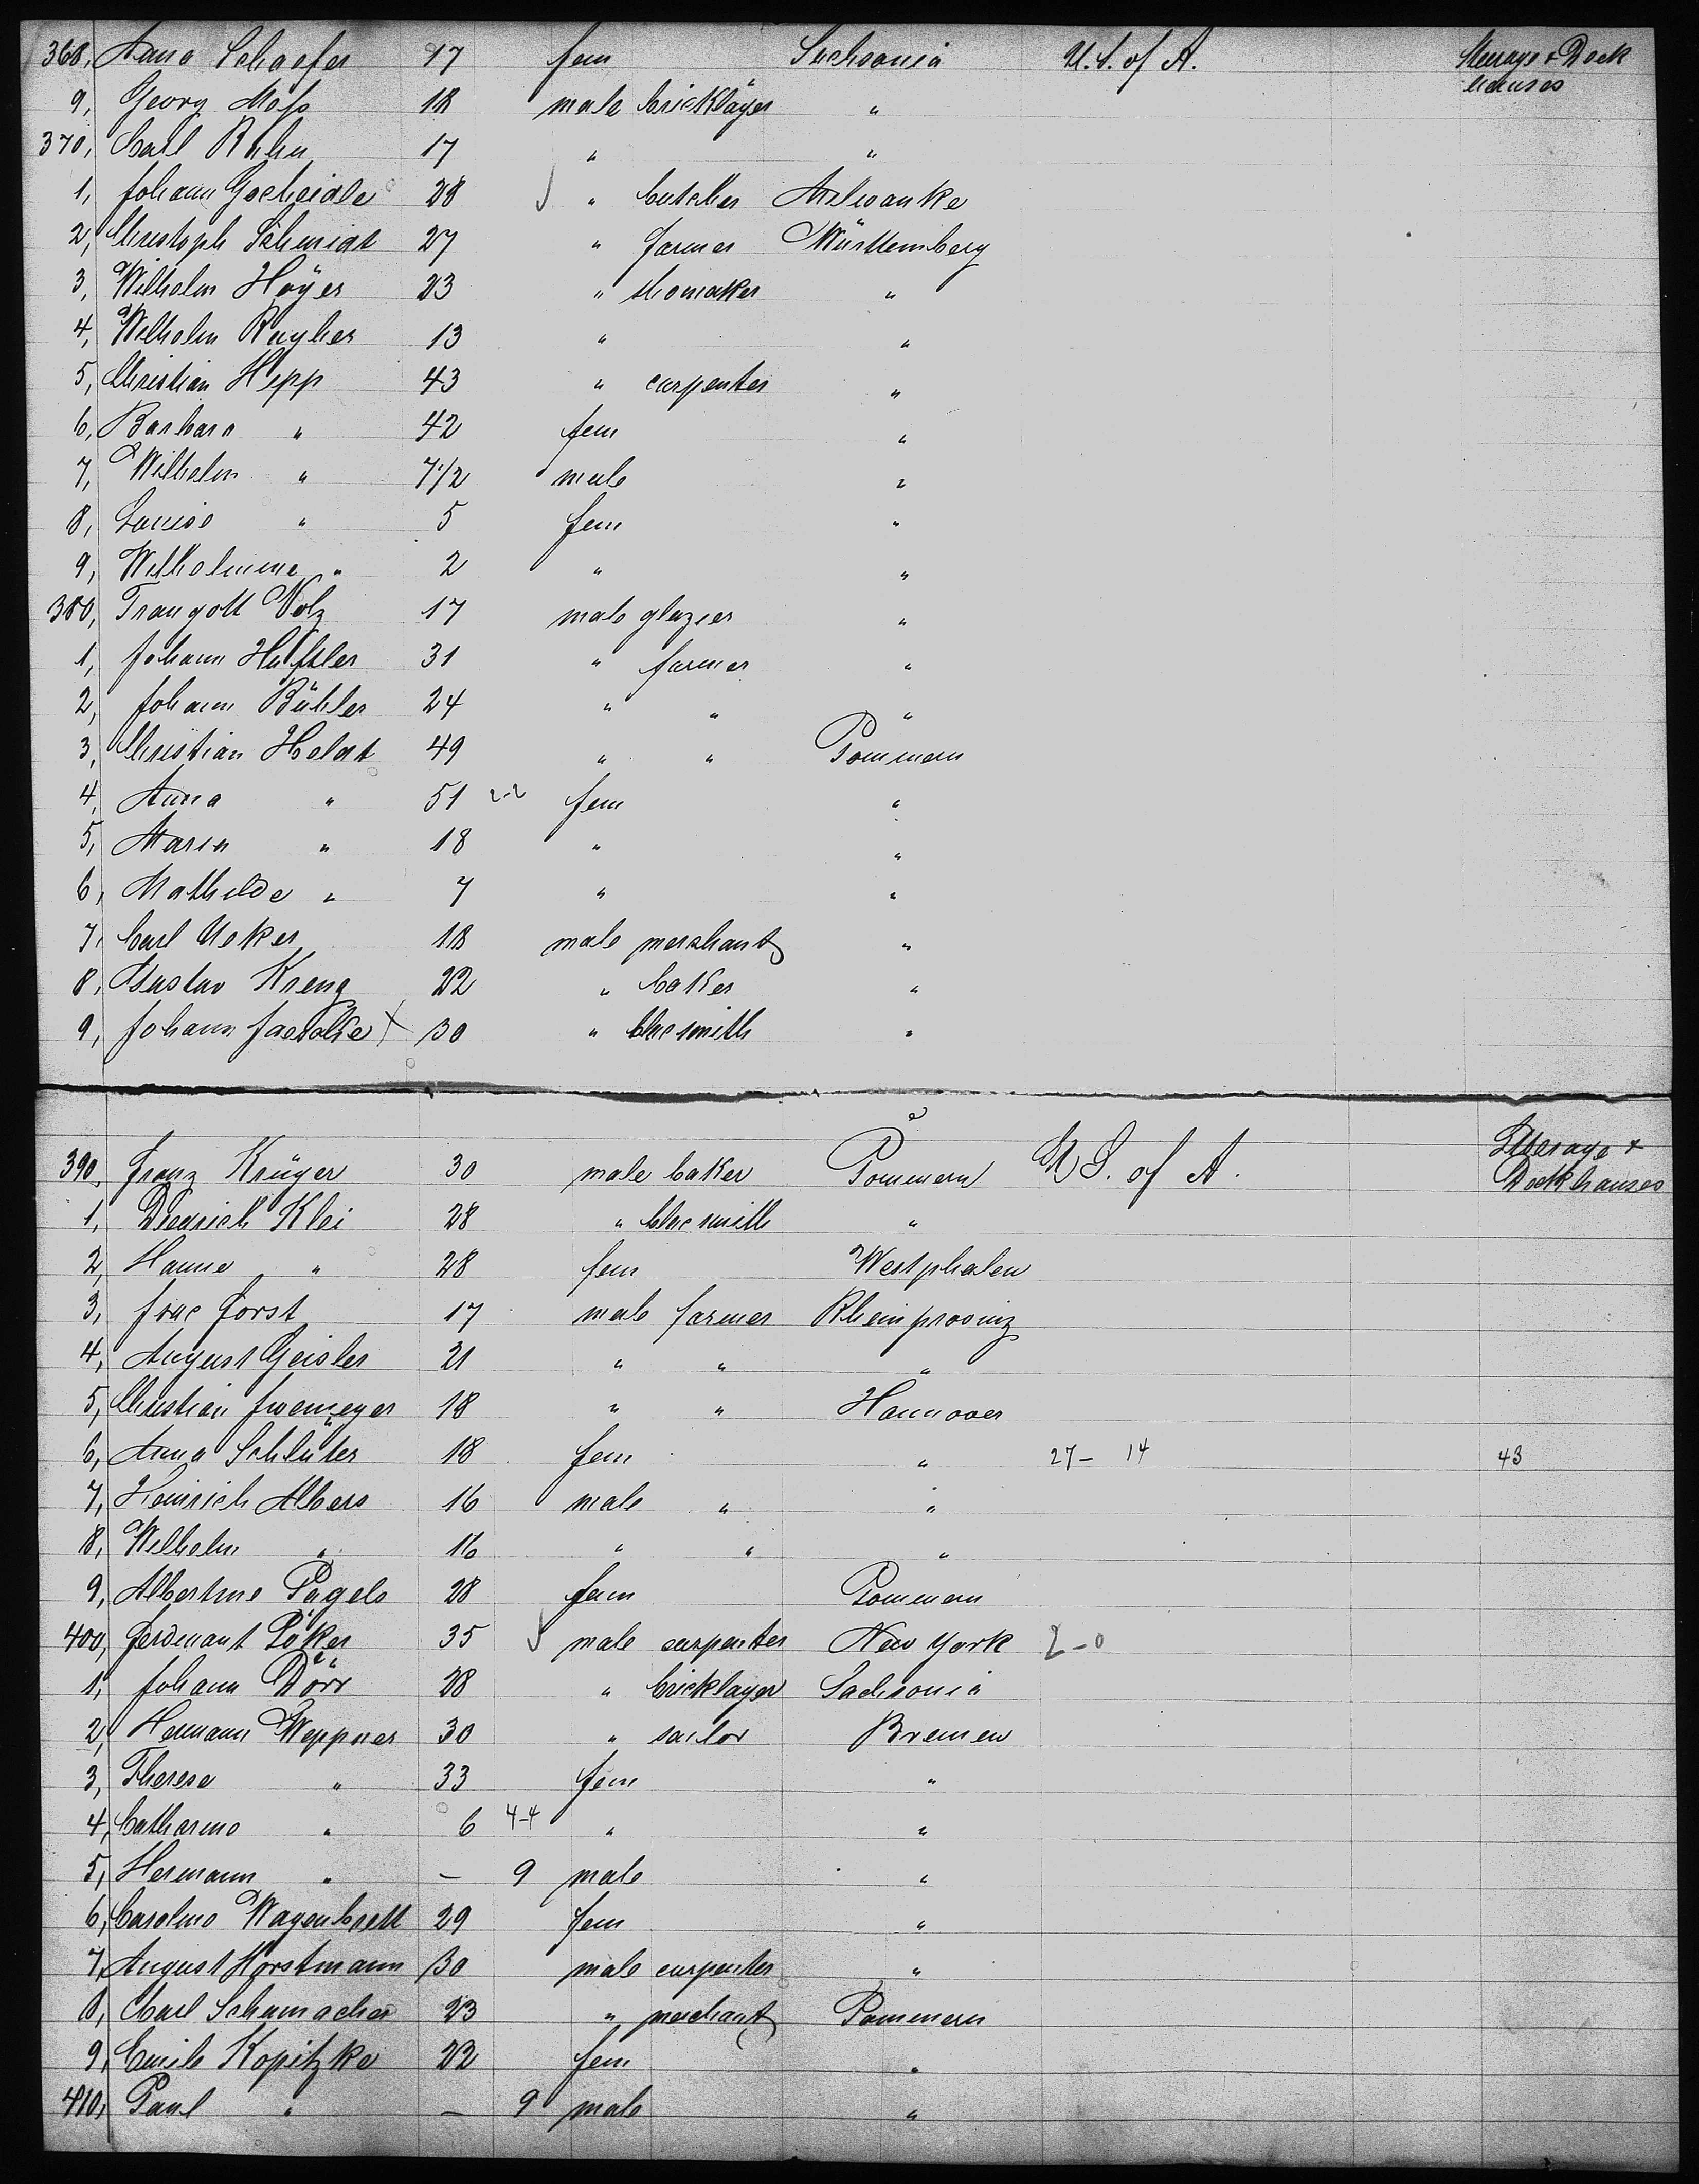 368, Anna Schaefer 17 fem Sachsonia U. S. of A. Steerage & Deck
houses
9, Georg Moss 18 male bricklayer "
370, Carl Ruhn 17 " "
1, Johann Gscheidle 28 " butcher Milwauke
2, Christoph Schmidt 27 " farmer Württemberg
3, Wilhelm Hoÿer 23 " shomaker "
4, Wilhelm Rayher 13 " "
5, Christian Hepp 43 " carpenter "
6, Barbara " 42 fem "
7, Wilhelm " 7 1/2 male "
8, Louise " 5 fem "
9, Wilhelmine " 2 " "
380, Traugott Volz 17 male glazier "
1, Johann Huftler 31 " farmer "
2, Johann Bühler 24 " " "
3, Christian Heldt 49 " " Pommern
4, Anna " 51 2-2 fem "
5, Maria " 18 " "
6, Mathilde " 7 " "
7, Carl Ueker 18 male merchant "
8, Gustav Kreng 22 " baker "
9, Johann X 30 " blacsmith "
390, Franz Krüger 30 male baker Pommern U S. of A. Steerage &
Deckhouses
1, Diedrich Klei 28 " blacsmith "
2, Hanne " 28 fem Westphalen
3, Forst 17 male farmer Rheinprovinz
4, August Geisler 21 " " "
5, Christian 18 " " Hannover
6, Anna Schlüter 18 fem " 27- 14 43
7, Heinrich Albers 16 male " "
8, Wilhelm " 16 " " "
9, Albertine Pagels 28 fem Pommern
400, Ferdinant Pöker 35 male carpenter New York 2-0
1, Johann Dörr 28 " bricklayer Sachsonia
2, Hermann Weppner 30 " sailor Bremen
3, Therese " 33 fem "
4, Catharine " 6 4-4 " "
5, Hermann " — 9 male "
6, Caroline Wagenbrett 29 fem "
7, August Horstmann 30 male carpenter "
8, Carl Schumacher 23 " merchant Pommern
9, Emile Kopitzke 22 fem "
410, Paul " — 9 male "